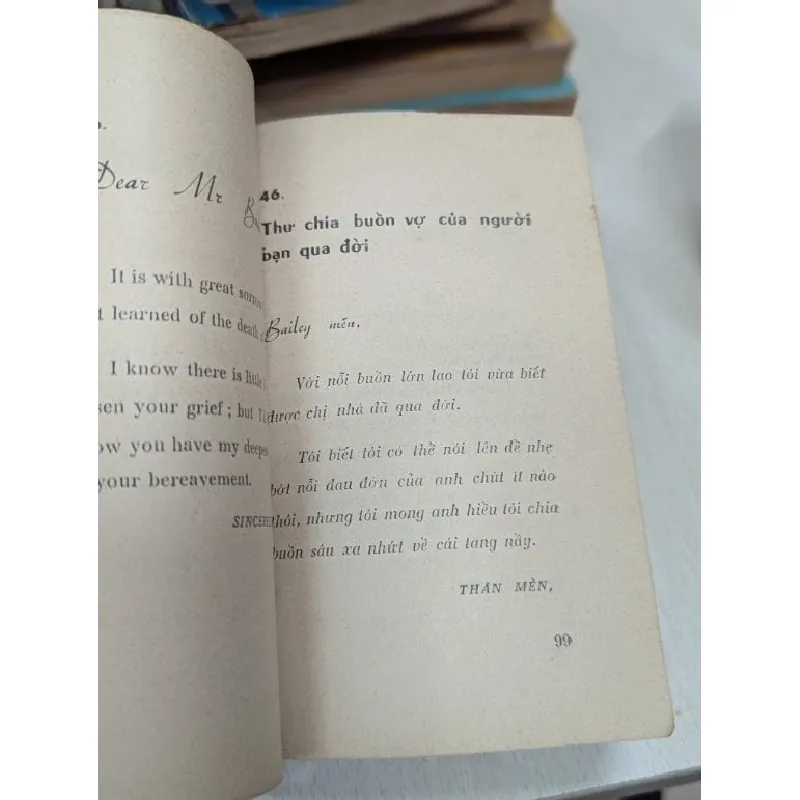 Dear Mr
It is with great
learned of the death
I know there is
your grief; but I
you have my
your bereavement.
46.
Thư chia buồn vợ của người
bạn qua đời
Bailey mến,
Với nỗi buồn lớn lao tôi vừa biết
được chị nhà đã qua đời.
Tôi biết tôi có thể nói lên để nhẹ
bớt nỗi đau đớn của anh chút ít nào
thôi, nhưng tôi mong anh hiểu tôi chia
buồn sâu xa nhứt về cái tang nầy.
THÂN MẾN,
99